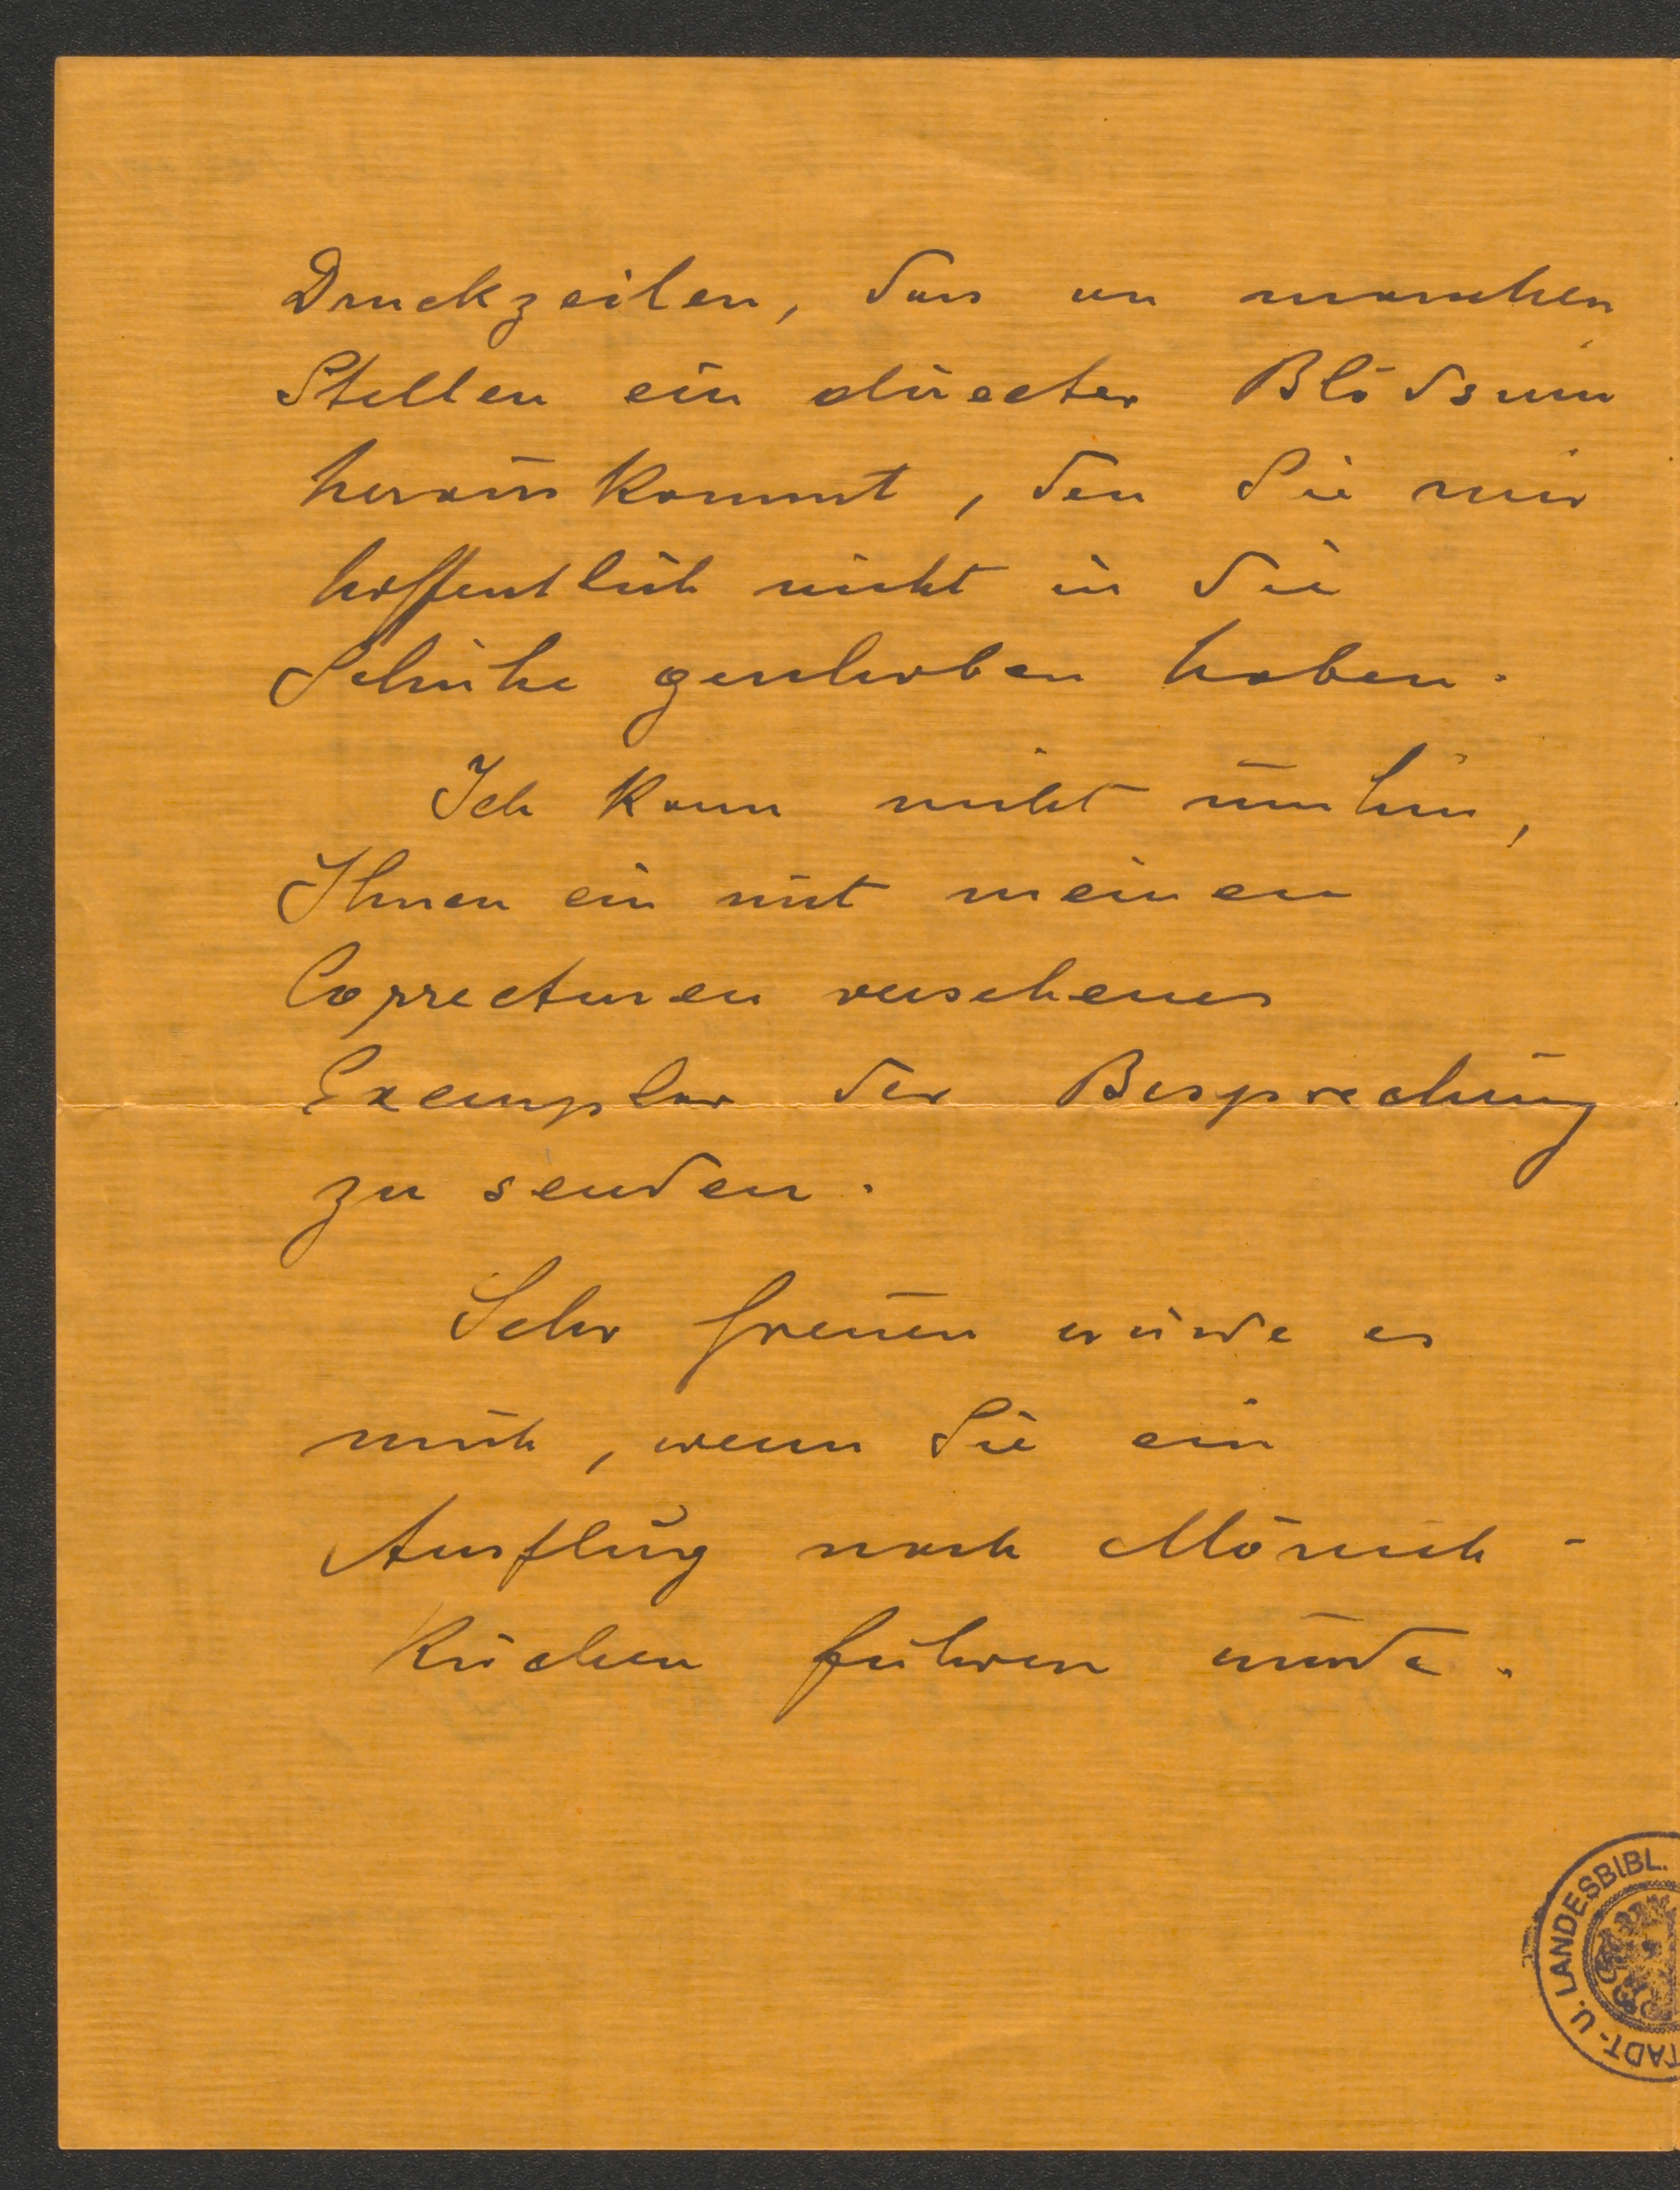 Druckzeilen, dass an manchen
Stellen ein directer Blödsinn
herauskommt, den Sie mir
hoffentlich nicht in die
Schuhe geschoben haben.
Ich kann nicht umhin,
Ihnen ein mit meinen
Correcturen versehenes
Exemplar der Besprechung
zu senden.
Sehr freuen würde es
mich, wenn Sie ein
Ausflug nach Mönich-
kirchen führen würde.
TADT- U. LANDESBIBL.